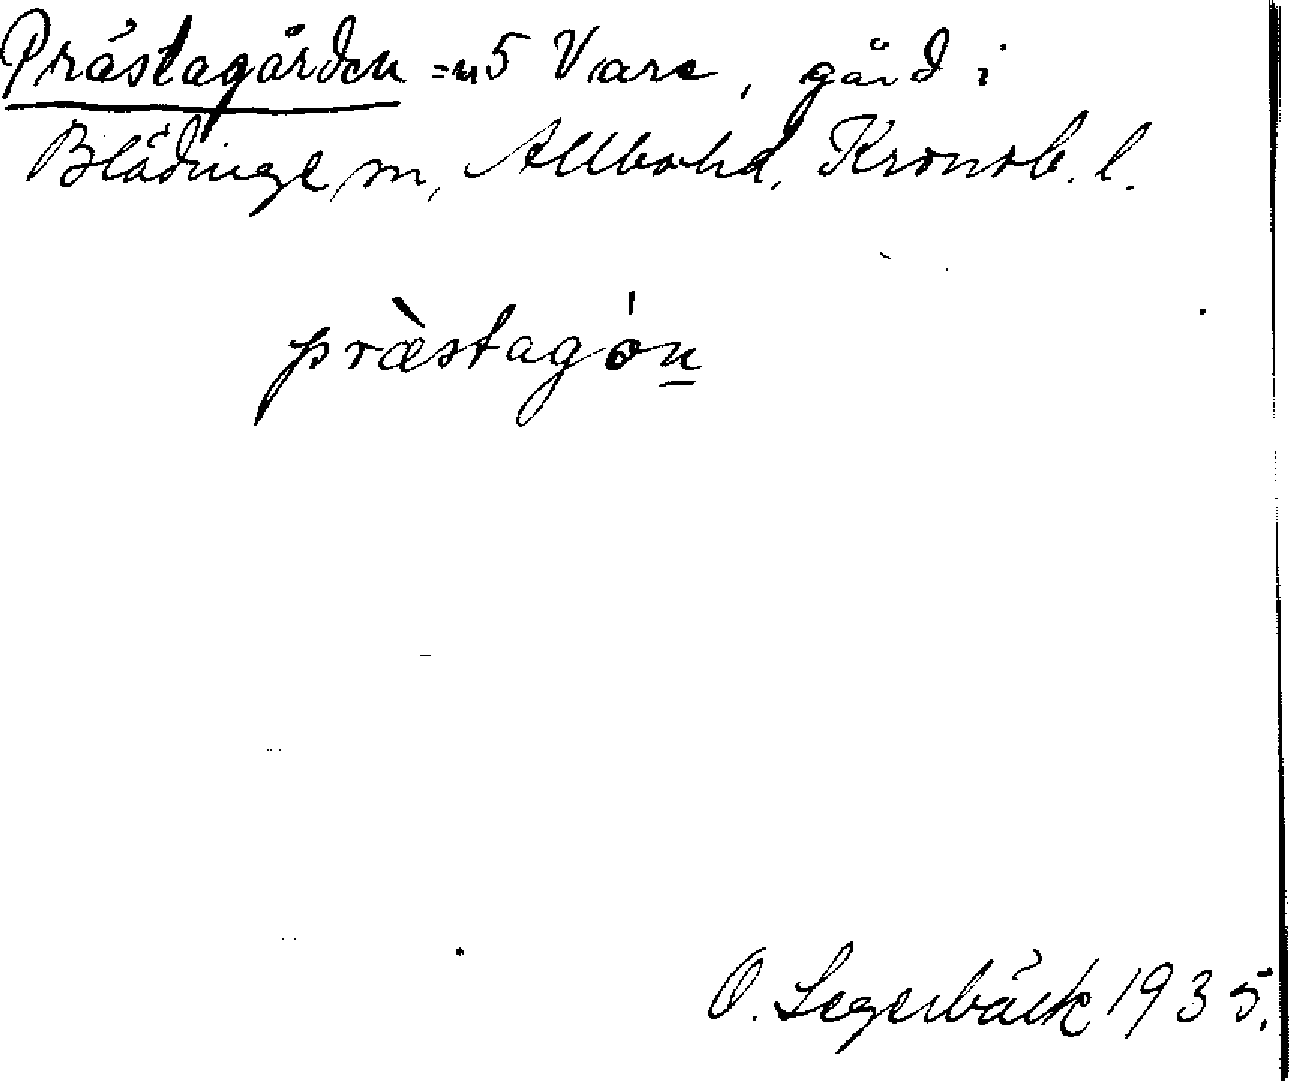 Prästagården = n 5 Vare, gård i
Blädinge sn, Allbo hd, Kronob. l.
præ̀stagón
O. Segerbäck 1935.